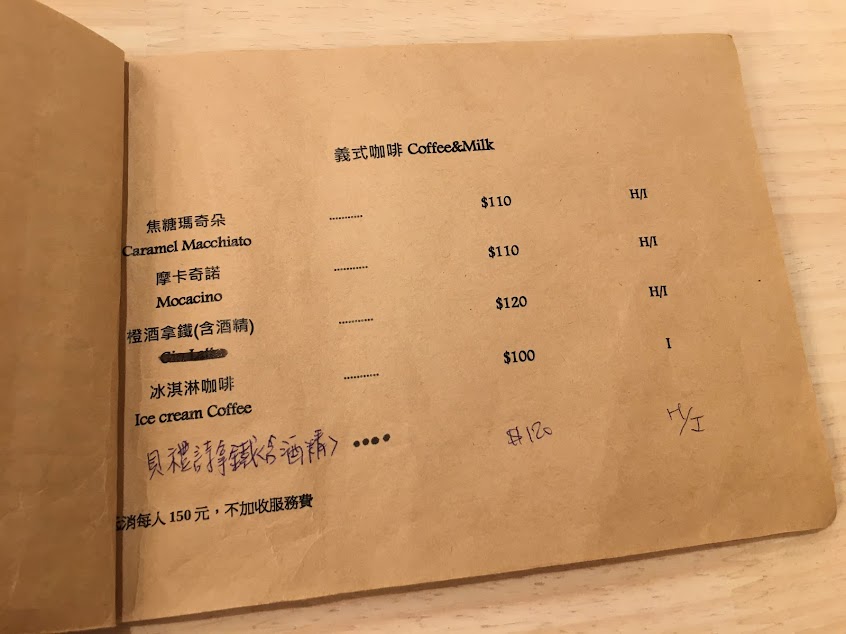 義式咖啡 Coffee&Milk
焦糖瑪奇朵 ........... $110 H/I
Caramel Macchiato
摩卡奇諾 ........... $110 H/I
Mocacino
橙酒拿鐵(含酒精) ........... $120 H/I
冰淇淋咖啡 ........... $100 I
Ice cream Coffee
貝禮詩拿鐵<含酒精> •••• $120 H/I
消每人 150 元，不加收服務費